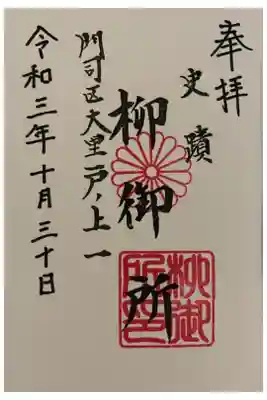 奉拝
史蹟
柳御所
門司区大里戸ノ上一
令和三年十月三十日
柳御
所印